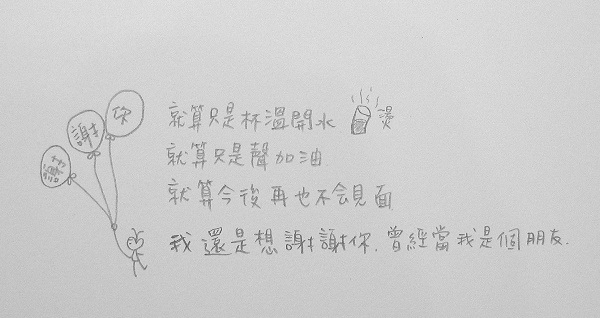 你
謝
謝
就算只是杯溫開水 燙
就算只是聲加油
就算今後再也不会見面
我還是想謝謝你. 曾經當我是個朋友.